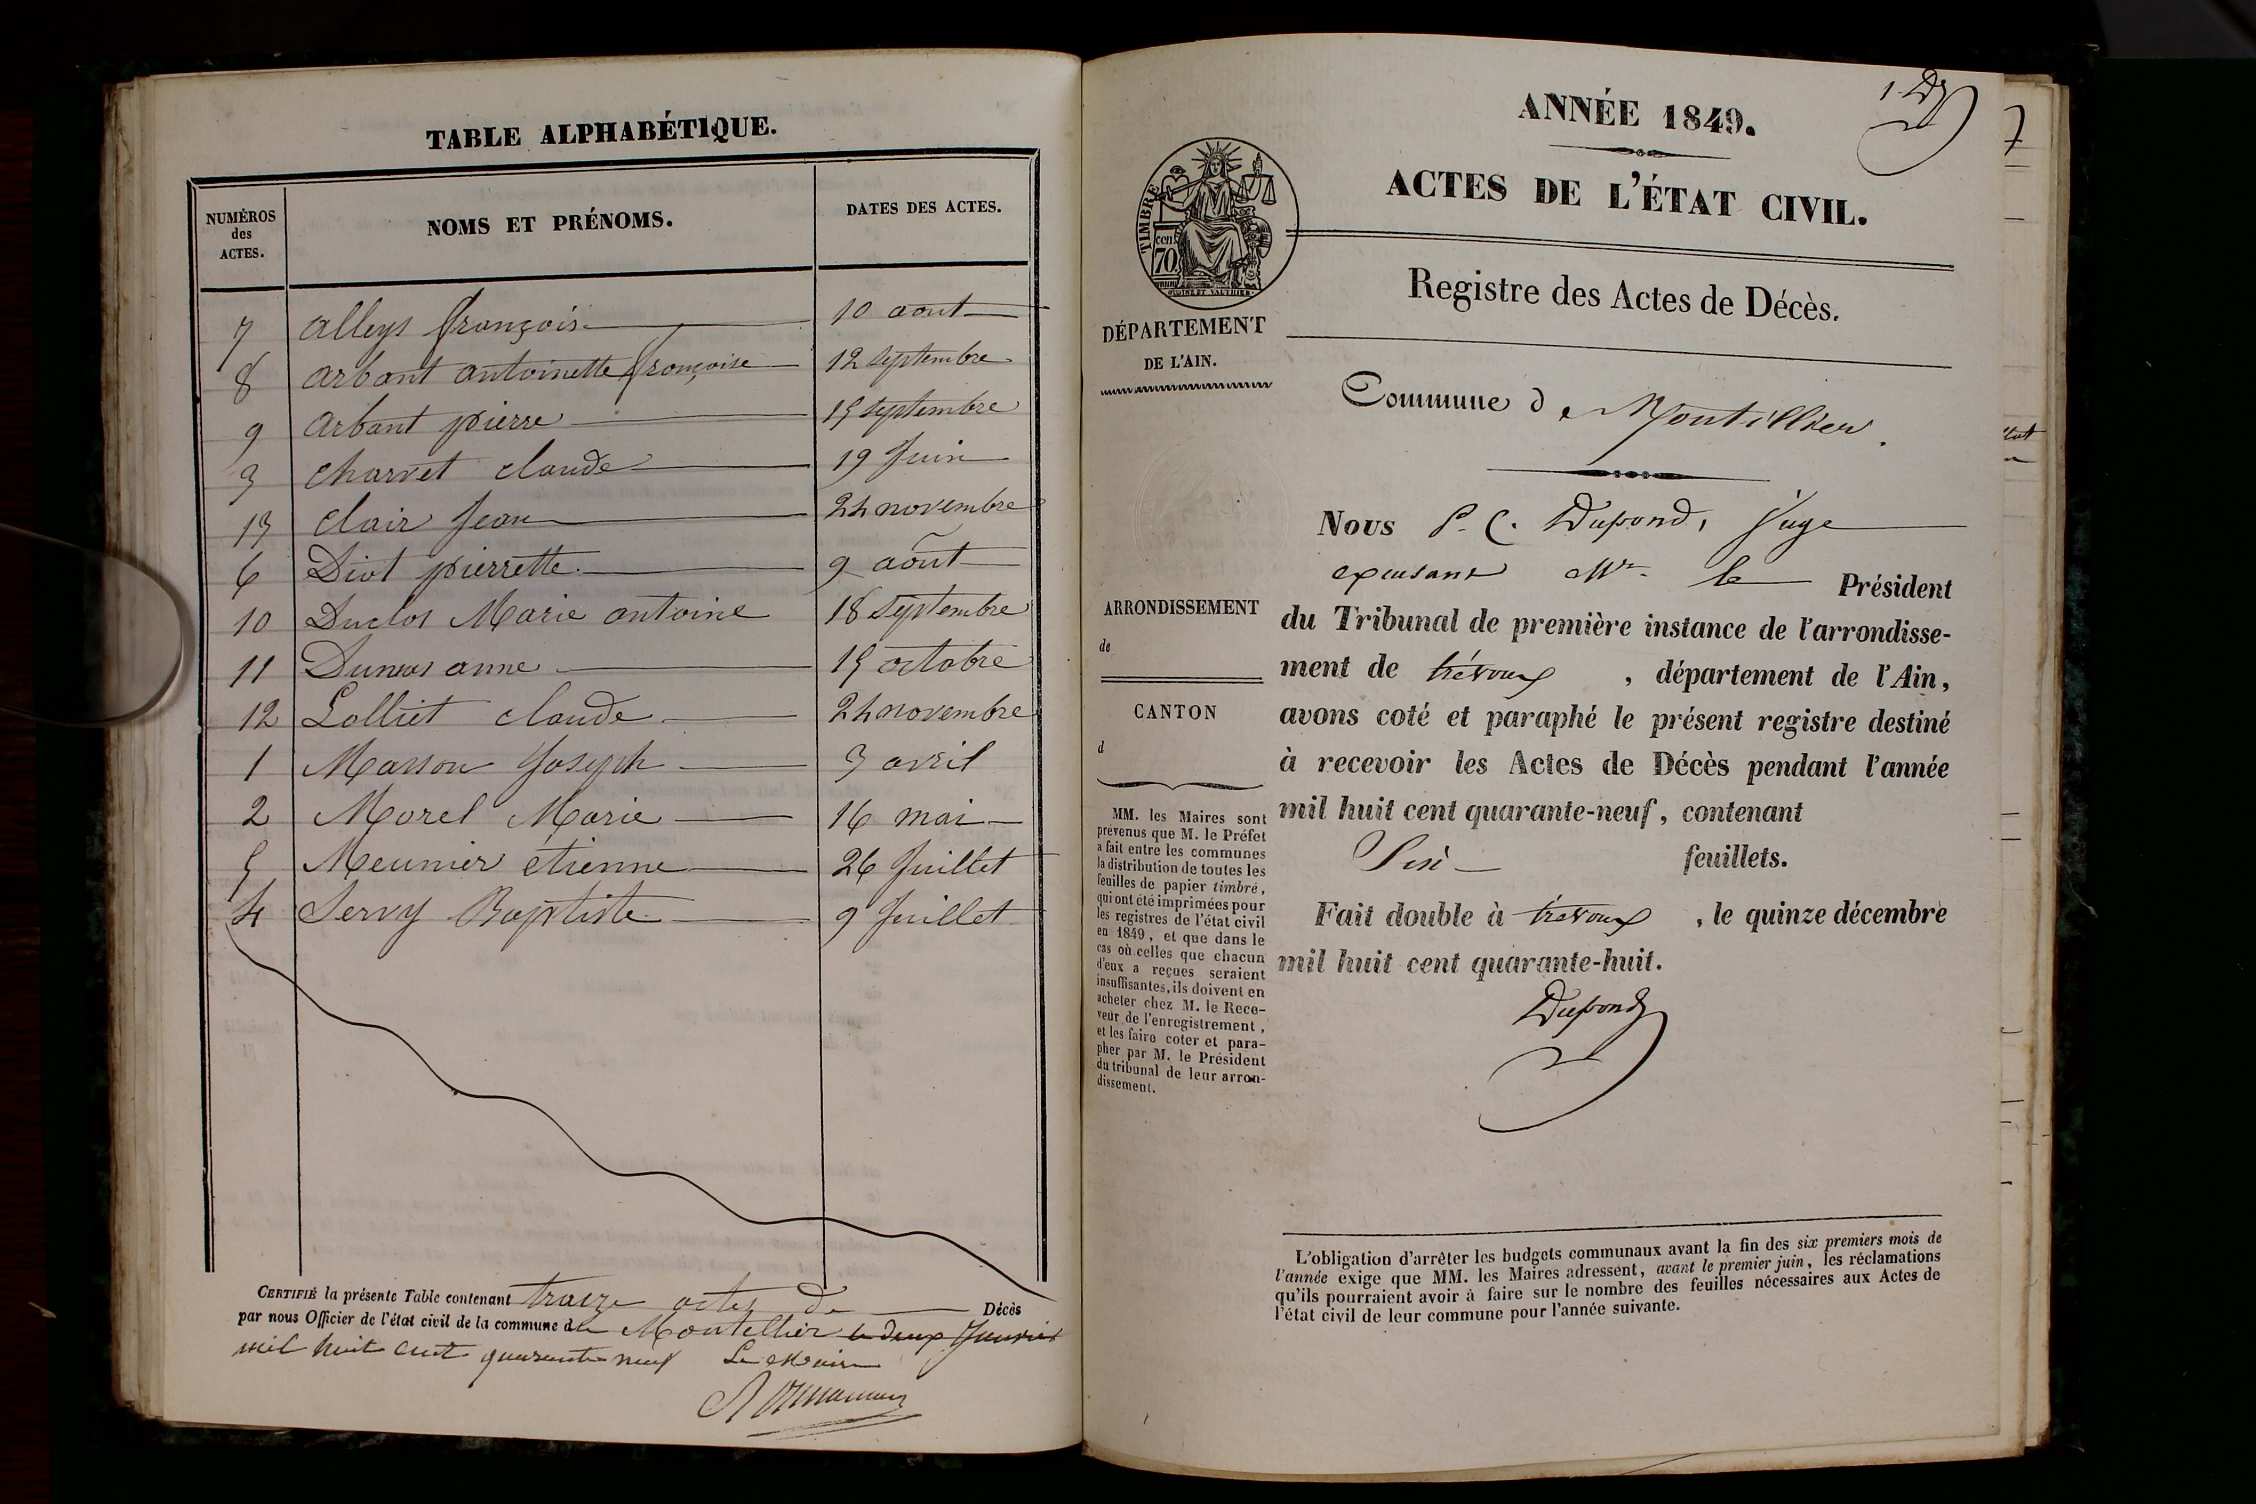 TABLE ALPHABÉTIQUE.
NUMÉROS des ACTES. NOMS ET PRÉNOMS. DATES DES ACTES.
7 alleys françois 10 aout
8 arbant antoinette françoise 12 septembre
9 arbant pierre 15 septembre
3 charvet claude 19 Juin
13 clair Jean 24 novembre
6 Diot pierrette 9 aôut
10 Duclos Marie antoine 18 septembre
11 anne 15 octobre
12 Lolliet claude 24 novembre
1 Masson Joseph 3 avril
2 Morel Marie 16 mai
5 Meunier étienne 26 Juillet
4 Servy Baptiste 9 Juillet
CERTIFIÉ la présente Table contenant treize actes de Décès
par nous Officier de l'état civil de la commune de Montellier le deux Janvier
mil huit cent quarante neuf Le Maire
1
ANNÉE 1849.
ACTES DE L'ÉTAT CIVIL.
Registre des Actes de Décès.
TIMBRE
70
DÉPARTEMENT
DE L'AIN.
Commune de Montellier.
Nous P. C. Dupond, Juge
excusant Mr. le Président
du Tribunal de première instance de l'arrondisse-
ment de trévoux, département de l'Ain,
avons coté et paraphé le présent registre destiné
à recevoir les Actes de Décès pendant l'année
mil huit cent quarante-neuf, contenant
Six feuillets.
Fait double à trévoux, le quinze décembre
mil huit cent quarante-huit.
Dupond
ARRONDISSEMENT
de
CANTON
d
MM. les Maires sont
prévenus que M. le Préfet
a fait entre les communes
la distribution de toutes les
feuilles de papier timbré,
qui ont été imprimées pour
les registres de l'état civil
en 1849, et que dans le
cas où celles que chacun
d'eux a reçues seraient
insuffisantes, ils doivent en
acheter chez M. le Rece-
veur de l'enregistrement,
et les faire coter et para-
pher par M. le Président
du tribunal de leur arron-
dissement.
L'obligation d'arrêter les budgets communaux avant la fin des six premiers mois de
l'année exige que MM. les Maires adressent, avant le premier juin, les réclamations
qu'ils pourraient avoir à faire sur le nombre des feuilles nécessaires aux Actes de
l'état civil de leur commune pour l'année suivante.